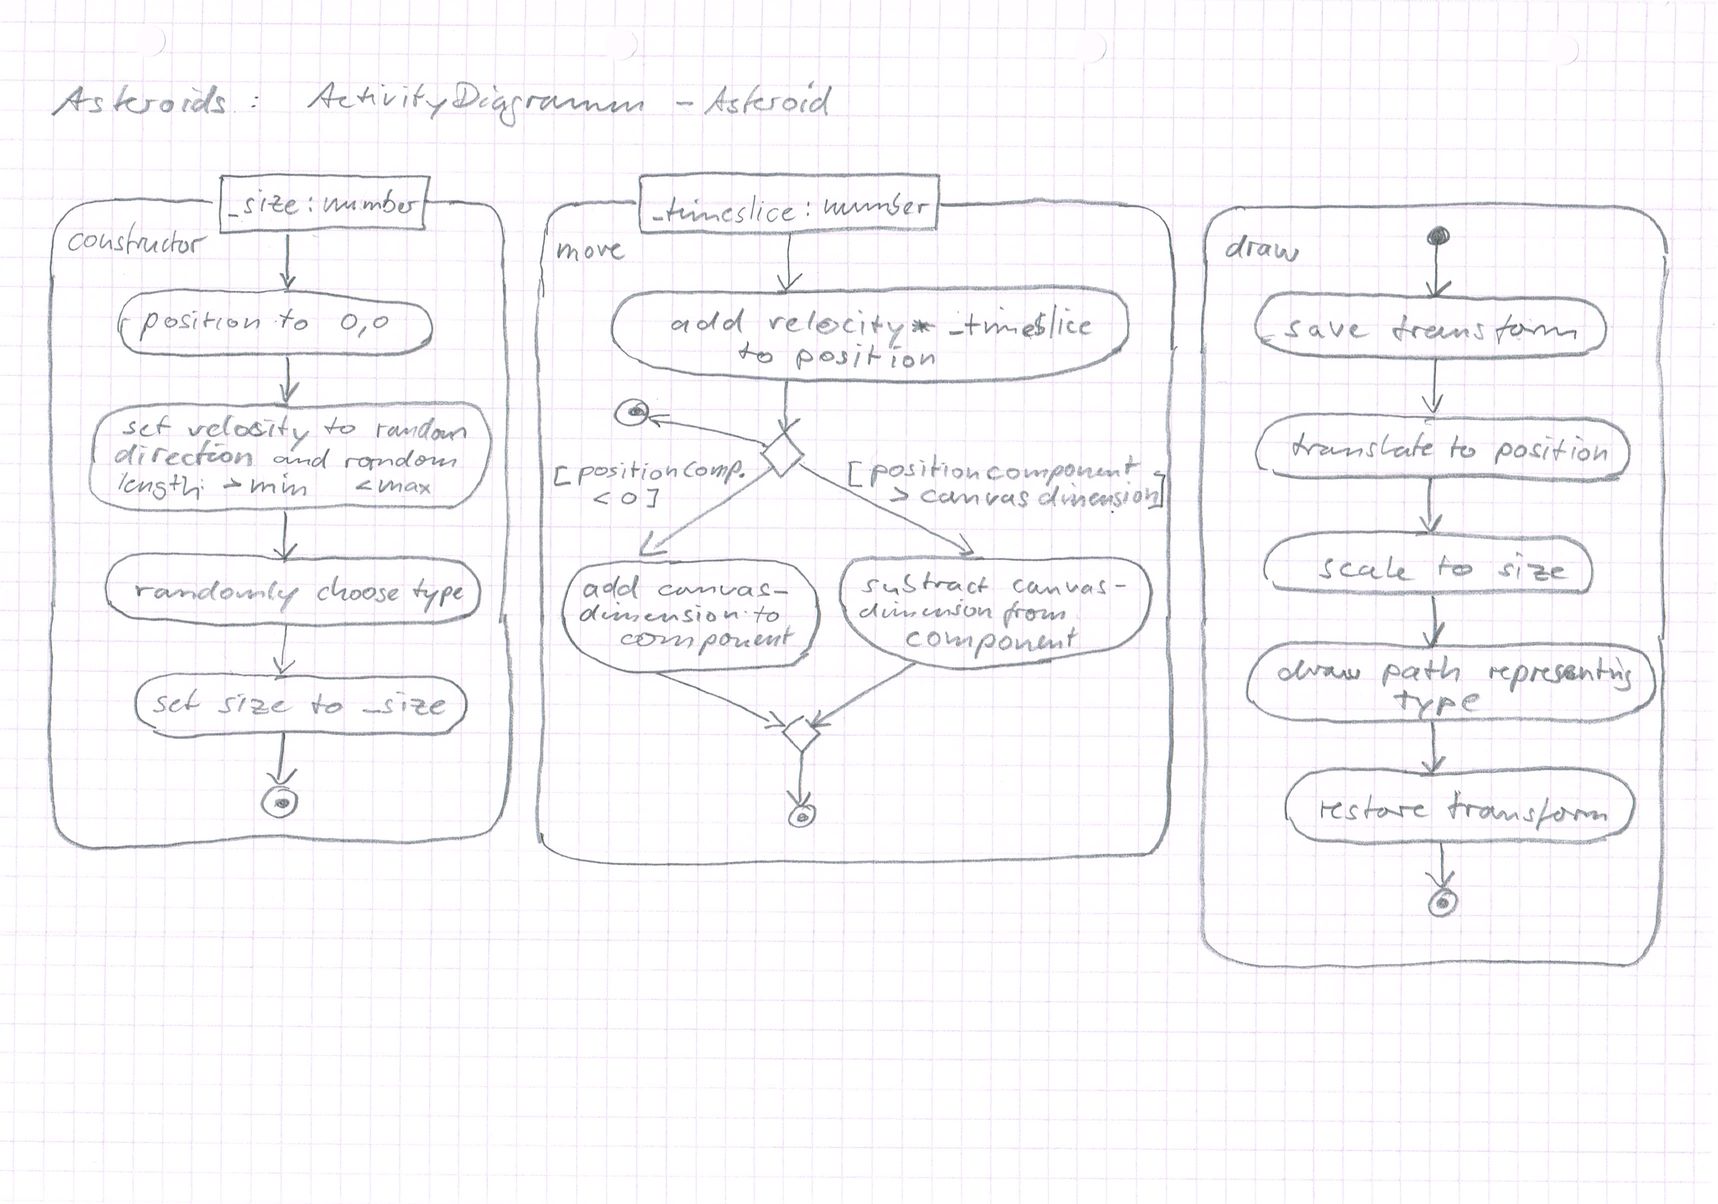 Asteroids: ActivityDiagramm - Asteroid
_size: number
constructor
position to 0,0
set velocity to random
direction and random
length: > min < max
randomly choose type
set size to _size
_timeslice: number
move
add velocity * _timeslice
to position
[positioncomp.
< 0]
[positioncomponent
> canvasdimension]
add canvas-
dimension to
component
subtract canvas-
dimension from
component
draw
save transform
translate to position
scale to size
draw path representing
type
restore transform